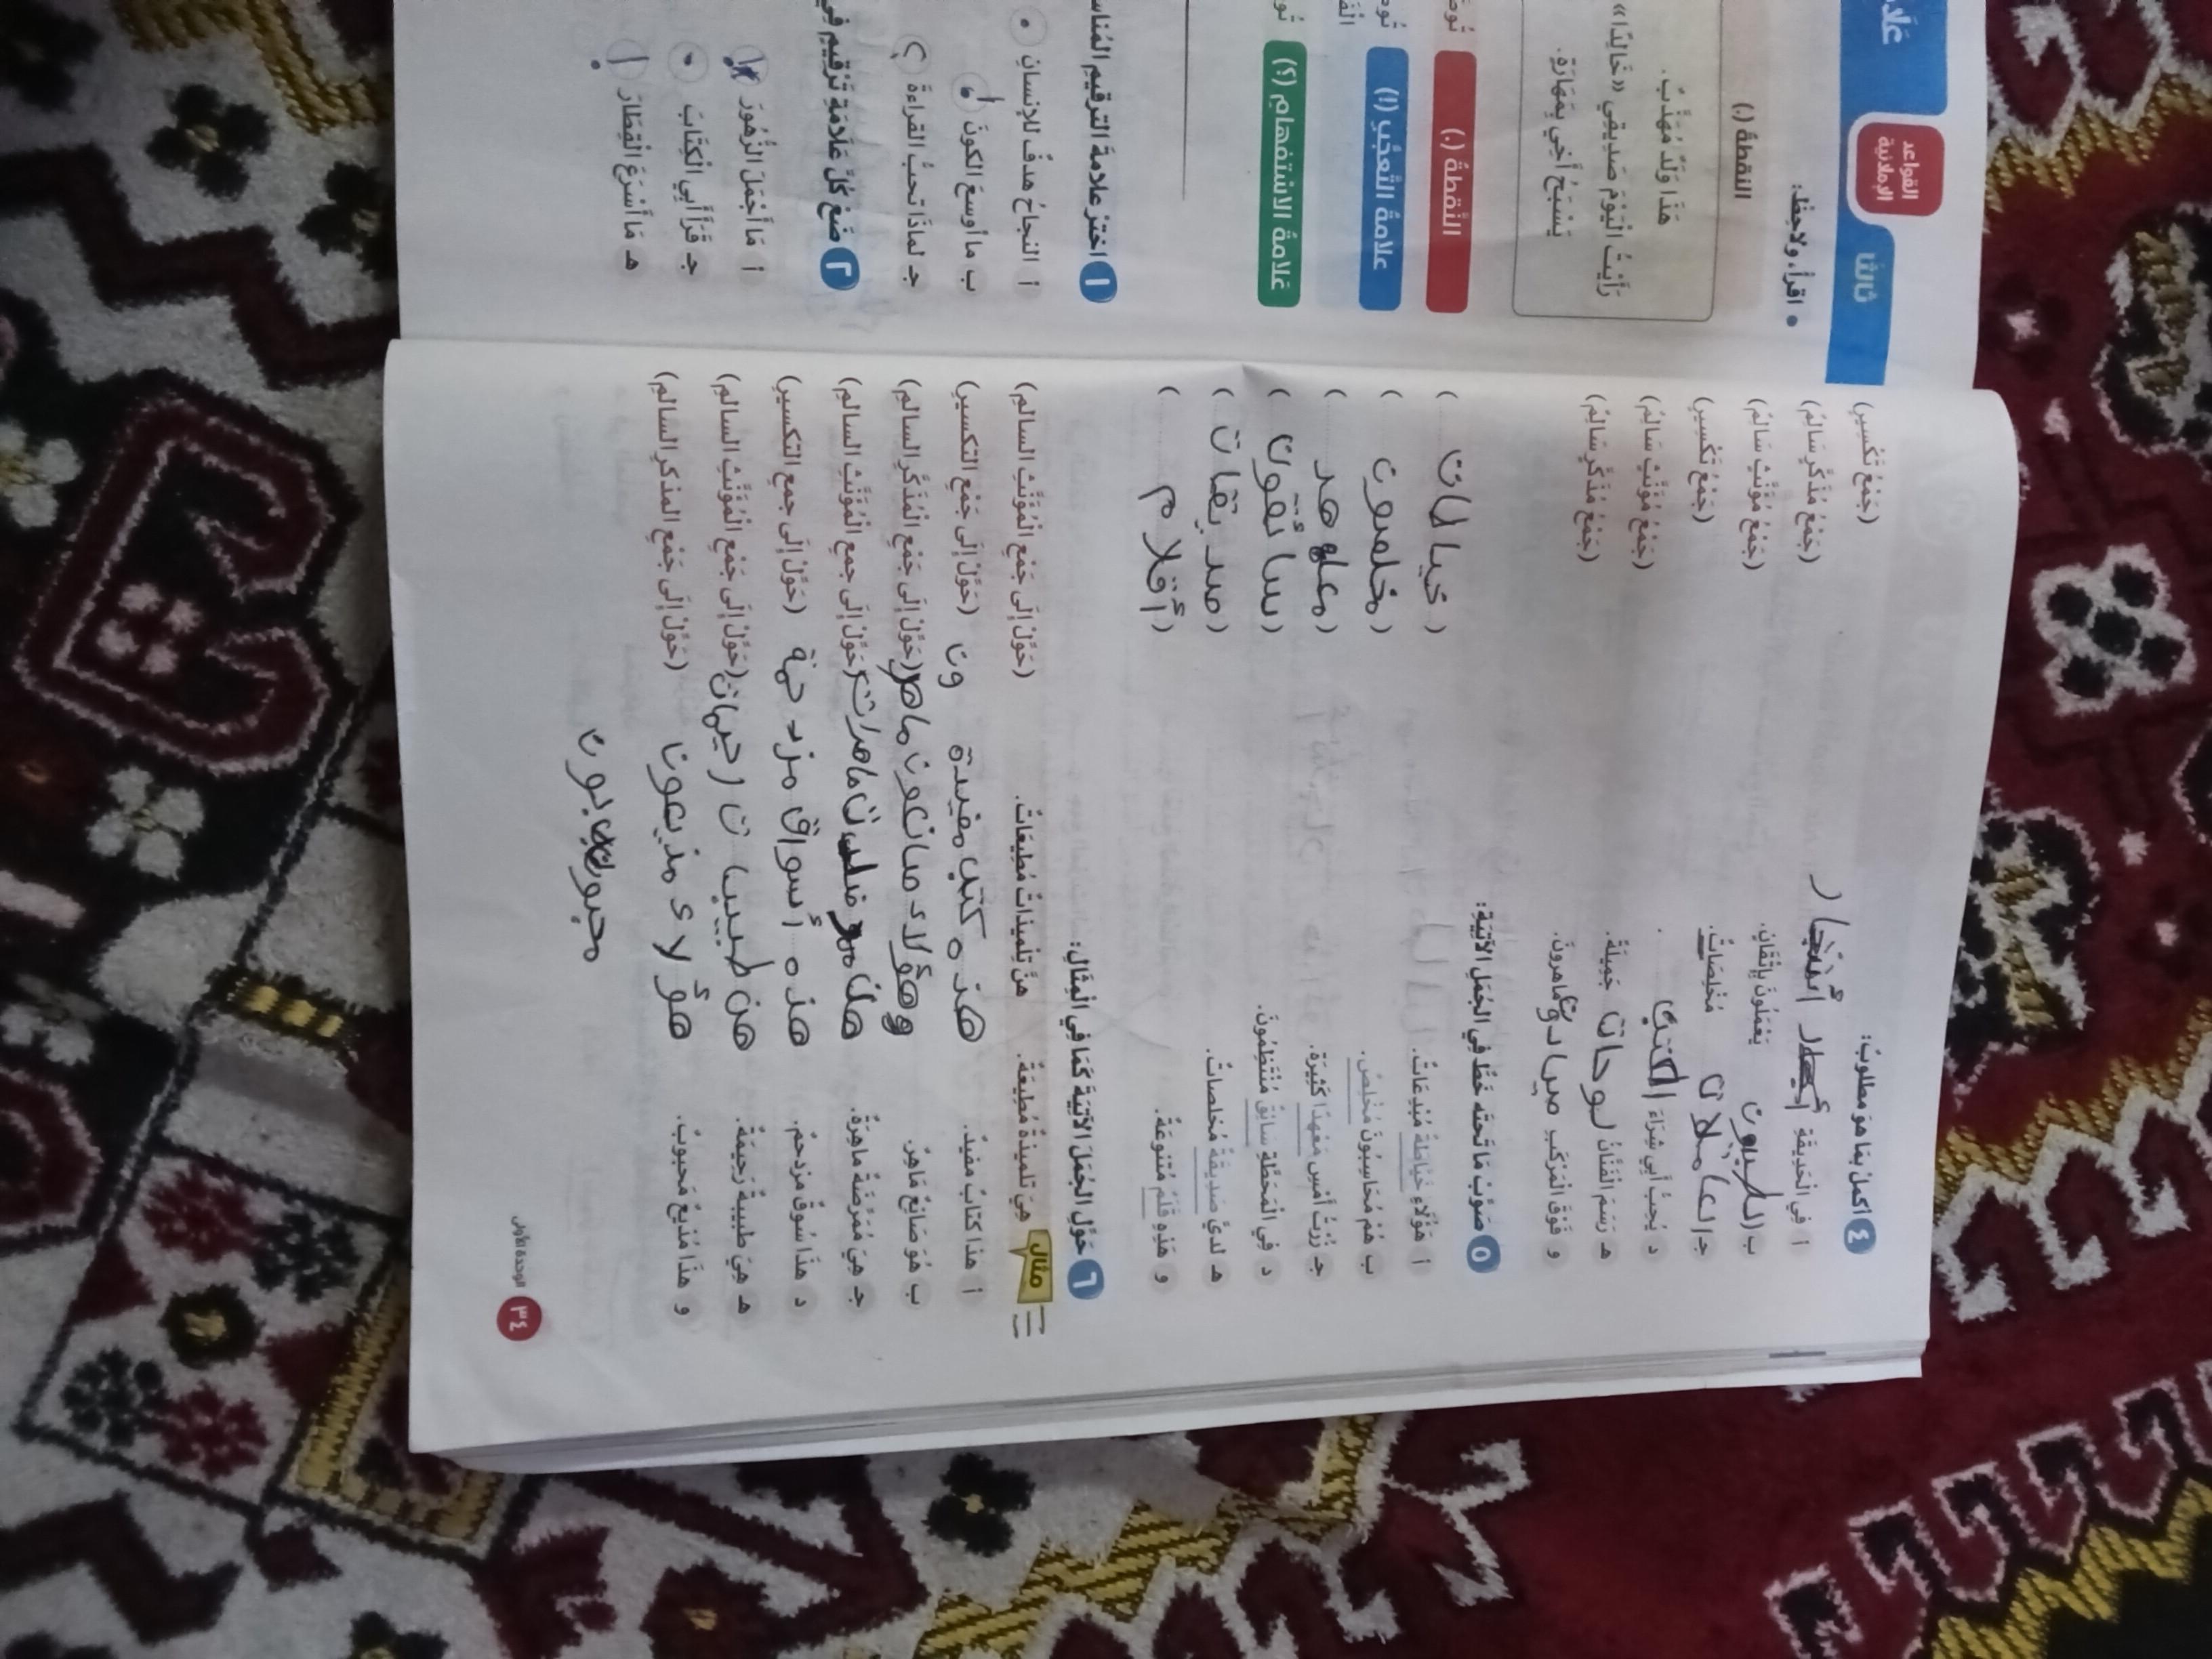 ٤ أكمل بما هو مطلوب:
أ في الْحَدِيقَةِ أشجار (جَمْعُ تَكْسِيرٍ)
ب يَعْمَلُونَ بِإِتْقَانٍ. (جَمْعُ مُذَكَّرٍ سَالِمٌ)
جـ العاملات مُخْلِصَاتٌ. (جَمْعُ مُؤَنَّثٍ سَالِمٌ)
د يُحِبُّ أَبِي شِرَاءَ الكتب . (جَمْعُ تَكْسِيرٍ)
هـ رَسَمَ الْفَنَّانُ لوحات جَمِيلَةً. (جَمْعُ مُؤَنَّثٍ سَالِمٌ)
و فَوْقَ الْمَرْكَبِ صيادون مَاهِرونَ. (جَمْعُ مُذَكَّرٍ سَالِمٌ)
٥ صَوِّبْ مَا تَحْتَه خَطٌّ فِي الْجُمَلِ الْآتِيَةِ:
أ هَؤُلَاءِ خَيَّاطَةٌ مُبْدِعَاتٌ. ( خيا لات )
ب هُمْ مُحَاسِبُونَ مُخْلِصٌ. ( مخلصون )
جـ زُرْتُ أَمْسِ مَعْهَدًا كَثِيرَة. ( )
د فِي الْمَحَطَّةِ سَائِقٌ مُنْتَظِمُونَ. ( سائقون )
هـ لديَّ صَدِيقَةٌ مُخلصاتٌ. ( صديقات )
و هَذِهِ قَلَمٌ مُتَنوعَةٌ. ( أقلام )
٦ حَوِّلِ الْجُمَلَ الْآتِيَةَ كَمَا فِي الْمِثَالِ:
مثال هِيَ تلْمِيذَةٌ مُطِيعَةٌ. هُنَّ تِلْمِيذَاتٌ مُطِيعَاتٌ. (حَوِّلْ إِلَى جَمْعِ الْمُؤَنَّثِ السالِمِ)
أ هذا كتابٌ مفيدٌ. هذه كتب مفيدة (حَوِّلْ إِلَى جَمْعِ التكسيرِ)
ب هُوَ صَانِعٌ مَاهِرٌ. وهؤلاء صانعون ماهرون (حَوِّلْ إِلَى جَمْعِ الْمُذَكَّرِ السالِمِ)
جـ هِيَ مُمَرِّضَةٌ مَاهِرَةٌ. هن ماهرات (حَوِّلْ إِلَى جمعِ الْمُؤَنَّثِ السالِمِ)
د هَذَا سُوقٌ مزدحمٌ. هذه أسواق مزدحمة (حَوِّلْ إِلَى جمعِ التكسيرِ)
هـ هِيَ طبيبةٌ رَحِيمَةٌ. هن طبيبات رحيمات (حَوِّلْ إِلَى جَمْعِ الْمُؤَنَّثِ السالِمِ)
و هذَا مُذيعٌ مَحبوبٌ. هؤلاء مذيعون (حَوِّلْ إِلَى جَمْعِ المذكرِ السالِمِ)
محبوبون
٣٤ الوحدة الأولى
ثالثًا
القواعد
الإملائية
• اقرأ، ولاحِظْ:
النقطةُ (.)
هَذَا وَلَدٌ مُهَذَّبٌ.
رَأَيْتُ الْيَوْمَ صَدِيقِي «خَالِدًا»
يَسْبَحُ أَخِي بِمَهَارَةٍ.
النُّقطةُ (.)
علامةُ التَّعجُّبِ (!)
عَلَامةُ الاسْتفهامِ (؟)
١ اخترْ علامةَ الترقيمِ المُناس
أ النجاحُ هدفٌ للإنسانِ .
ب ما أوسعَ الكونَ !
جـ لماذَا تحبُّ القراءةَ ؟
٢ ضَعْ كُلَّ عَلَامَةِ تَرْقِيمٍ فِي
أ مَا أَجْمَلَ الزُّهُورَ !
جـ قَرَأَ أَبِي الْكِتَابَ .
هـ مَا أَسْرَعَ الْقِطَارَ !